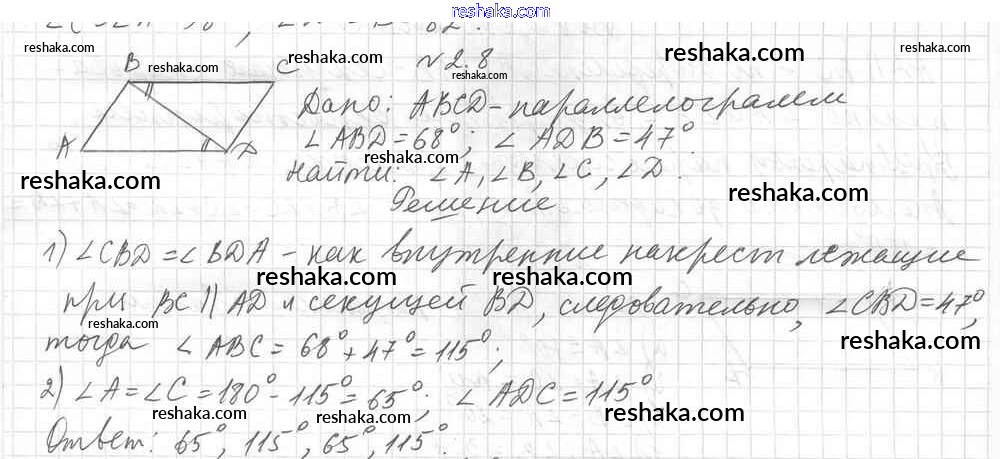 reshaka.com
reshaka.com
B reshaka.com C
№2.8
reshaka.com
reshaka.com
reshaka.com
Дано: ABCD - параллелограмм
∠ABD = 68°; ∠ADB = 47°.
A D
reshaka.com
reshaka.com
Найти: ∠A, ∠B, ∠C, ∠D.
reshaka.com
Решение
1) ∠CBD = ∠BDA - как внутренние накрест лежащие
reshaka.com reshaka.com reshaka.com
при BC || AD и секущей BD, следовательно, ∠CBD = 47°,
reshaka.com
тогда ∠ABC = 68° + 47° = 115°;
reshaka.com
2) ∠A = ∠C = 180° - 115° = 65°; ∠ADC = 115°
reshaka.com reshaka.com reshaka.com
Ответ: 65°, 115°, 65°, 115°.